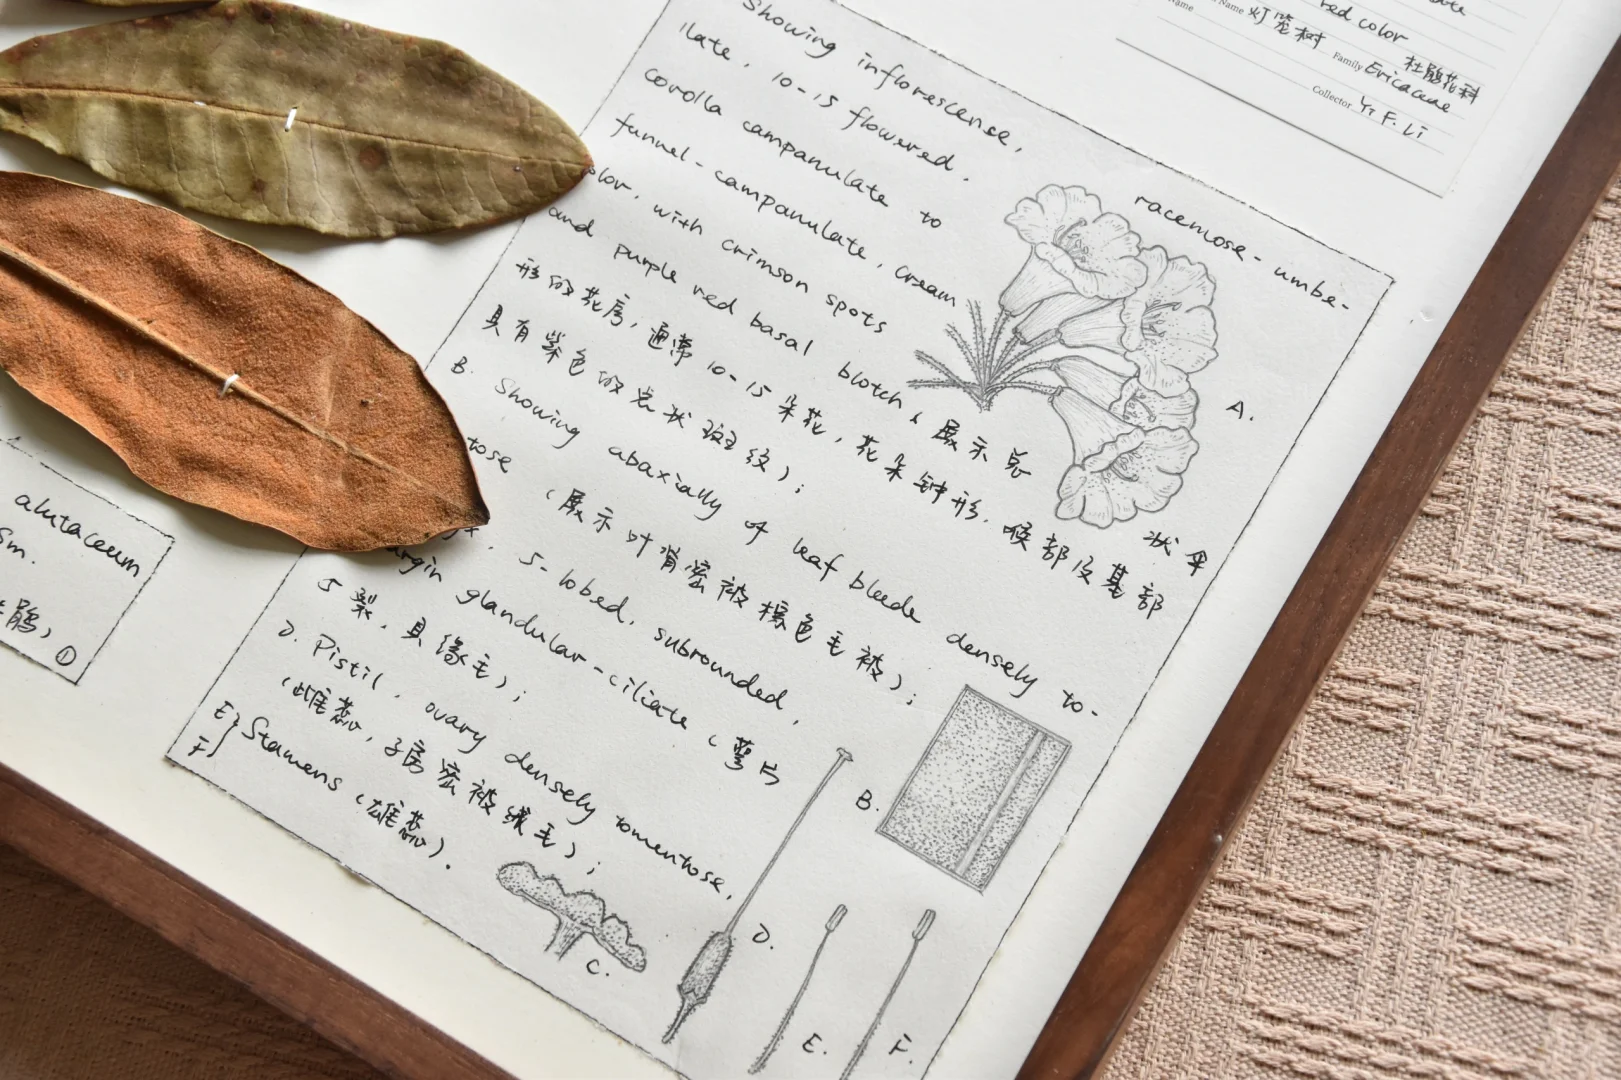 Showing inflorescence, racemose-umbe-
llate, 10-15 flowered.
corolla campanulate to
funnel-campanulate, cream
color, with crimson spots
and purple red basal blotch (展示总状伞
形的花房,通常10-15朵花,花朵钟形.喉部及基部
具有紫色的点状斑纹);
B. Showing abaxially of leaf blade densely to-
tose (展示叶背密被棕色毛被);
5-lobed, subrounded,
margin glandular-ciliate (萼片
5裂,具缘毛);
D. Pistil, ovary densely tomentose,
(雌蕊,子房密被绒毛);
E
F } Stamens (雄蕊).
A.
B.
C.
D.
E.
F.
alutaceum
Sm.
鹃)
①
red color
Name 灯笼树
Name
Family Ericaceae 杜鹃花科
Collector Y. F. Li